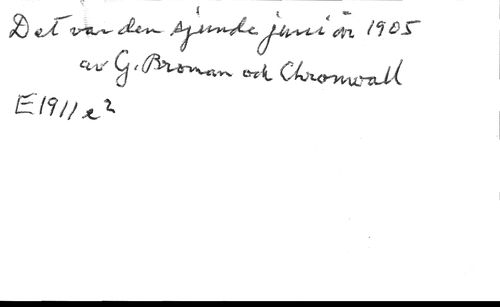 Det var den sjunde juni år 1905
av G. Broman och Chronwall
E1911e²